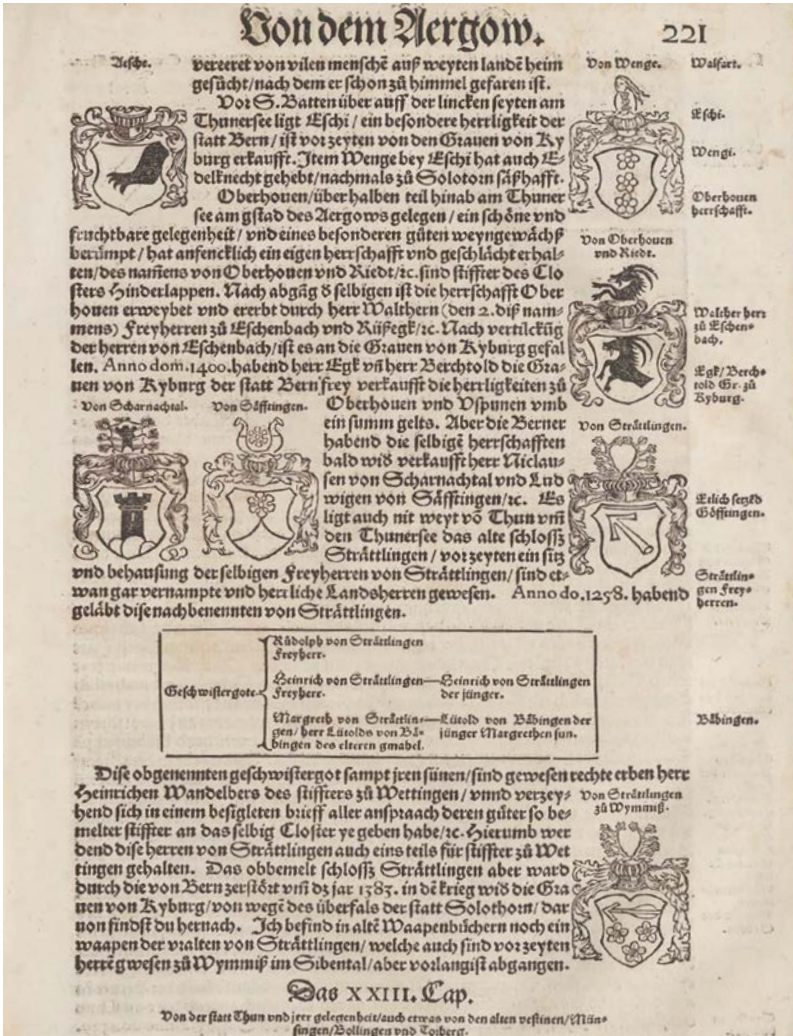 Von dem Aergow.
221
Aesche.
vereeret von vilen menschē auß weyten landē heim
gesücht/nach dem er schon zů himmel gefaren ist.
Vor S. Batten über auff der lincken seyten am
Thunersee ligt Eschi / ein besondere herrligkeit der
statt Bern / ist vor zeyten von den Grauen von Ky
burg erkaufft. Item Wenge bey Eschi hat auch E⸗
delknecht gehebt/nachmals zů Solotorn säßhafft.
Oberhouen/über halben teil hinab am Thuner
see am gstad des Aergows gelegen / ein schöne vnd
fruchtbare gelegenheit / vnd eines besonderen gůten weyngewächß
berümpt / hat anfencklich ein eigen herrschafft vnd geschlächt erhal⸗
ten/des nam̃ens von Oberhouen vnd Riedt/ꝛc. sind stiffter des Clo
sters Hinderlappen. Nach abgāg d̕ selbigen ist die herrschafft Ober
houen erweybet vnd ererbt durch herr Walthern (den 2. diß nam⸗
mens) Freyherren zů Eschenbach vnd Rüßegk/ꝛc. Nach vertilckūg
der herren von Eschenbach/ist es an die Grauen von Kyburg gefal
len. Anno dom. 1400. habend herr Egk vn̄ herr Berchtold die Gra⸗
uen von Kyburg der statt Bern frey verkaufft die herrligkeiten zů
Oberhouen vnd Vspunen vmb
ein summ gelts. Aber die Berner
habend die selbigē herrschafften
bald wid̕ verkaufft herr Niclau⸗
sen von Scharnachtal vnd Lud
wigen von Säfftingen/ꝛc. Es
ligt auch nit weyt vō Thun vn̄
den Thunersee das alte schlossz
Strättlingen / vor zeyten ein sitz
vnd behausung der selbigen Freyherren von Strättlingen/ sind et⸗
wan gar vernampte vnd herrliche Landsherren gewesen. Anno do. 1258. habend
geläbt dise nachbenennten von Strättlingen.
Von Scharnachtal.
Von Säfftingen.
Von Wenge.
Von Oberhouen
vnd Riedt.
Von Strättlingen.
Walfart.
Eschi.
Wengi.
Oberhouen
herrschafft.
Walther herr
zů Eschen⸗
bach.
Egk/ Berch⸗
told Gr. zů
Kyburg.
Etlich setzēd
Göfftingen.
Strättlin⸗
gen Frey⸗
herren.
Geschwistergote
Růdolph von Strättlingen
Freyherr.
Heinrich von Strättlingen—Heinrich von Strättlingen
Freyherr. der jünger.
Margreth von Strättlin⸗—Lütold von Bäbingen der
gen/ herr Lütolds von Bä⸗ jünger Margrethen sun.
bingen des elteren gmahel.
Bäbingen.
Dise obgenennten geschwistergot sampt jren sünen/sind gewesen rechte erben herr
Heinrichen Wandelbers des stiffters zů Wettingen / vnnd verzey⸗
hend sich in einem besigleten brieff aller anspraach deren güter so be⸗
melter stiffter an das selbig Closter ye geben habe/ꝛc. Hierumb wer
dend dise herren von Strättlingen auch eins teils für stiffter zů Wet
tingen gehalten. Das obbemelt schlossz Strättlingen aber ward
durch die von Bern zerstört vm̄ dz jar 1383. in dē krieg wid̕ die Gra
uen von Kyburg/von wegē des überfals der statt Solothorn/ dar
uon findst du hernach. Ich befind in altē Waapenbüchern noch ein
waapen der vralten von Strättlingen/ welche auch sind vor zeyten
herrē gwesen zů Wymmiß im Sibental/aber vorlangist abgangen.
Von Strättlingen
zů Wymmiß.
Das XXIII. Cap.
Von der statt Thun vnd jrer gelegenheit/auch etwas von den alten vestinen/Mün⸗
singen/Bollingen vnd Torberg.